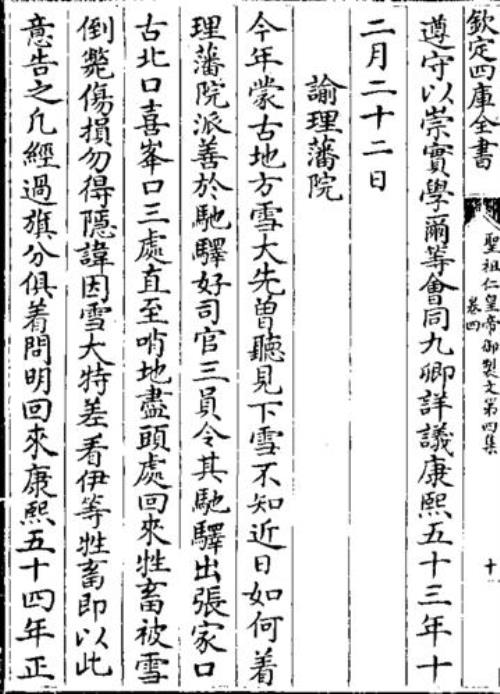 欽定四庫全書
聖祖仁皇帝御製文第四集
卷四
十
遵守以崇實學爾等會同九卿詳議康熙五十三年十
二月二十二日
諭理藩院
今年蒙古地方雪大先曽聽見下雪不知近日如何着
理藩院派善於馳驛好司官三員令其馳驛出張家口
古北口喜峯口三處直至哨地盡頭處回來牲畜被雪
倒斃傷損勿得隱諱因雪大特差看伊等牲畜即以此
意告之凡經過旗分俱着問明回來康熙五十四年正